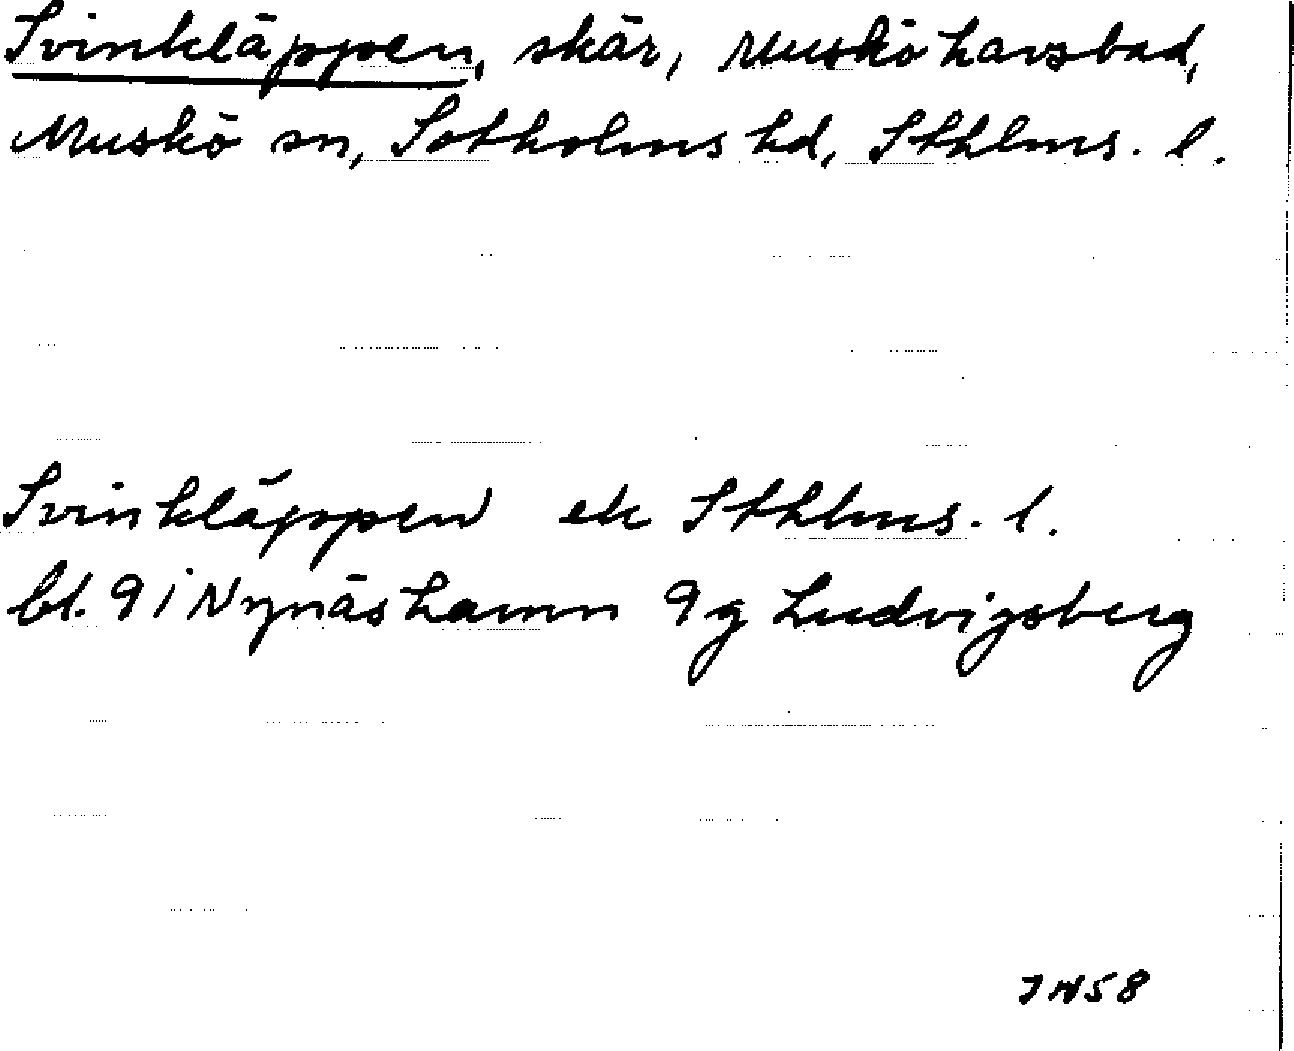 Svinkläppen, skär, Muskö havsbad,
Muskö sn, Sotholms hd, Sthlms. l.
Svinkläppen ek Sthlms. l.
bl. 9 i Nynäshamn 9g Ludvigsberg
JN58